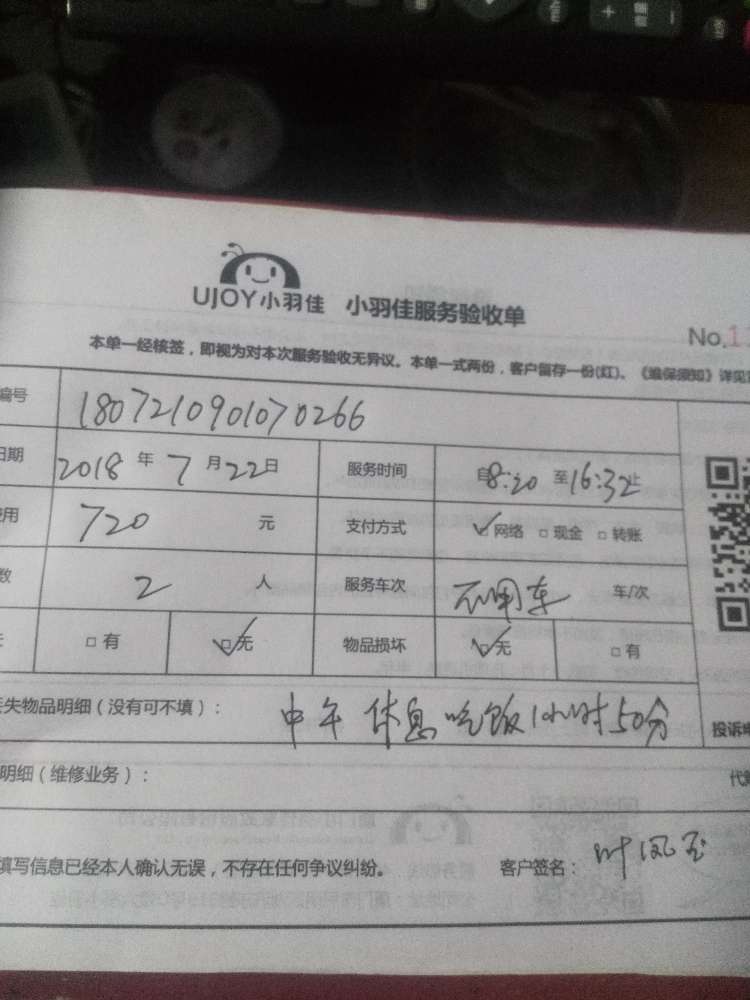 UJOY小羽佳 小羽佳服务验收单
No.1
本单一经核签，即视为对本次服务验收无异议。本单一式两份，客户留存一份(红)。《维保须知》详见
编号 1807210901070266
日期 2018 年 7 月 22 日 服务时间 自8:20 至16:32止
费用 720 元 支付方式 ☑网络 □现金 □转账
数 2 人 服务车次 不用车 车/次
□有 ☑无 物品损坏 ☑无 □有
失物品明细（没有可不填）： 中午 休息吃饭1小时50分
投诉电
明细（维修业务）：
填写信息已经本人确认无误，不存在任何争议纠纷。 客户签名： 叶凤玉